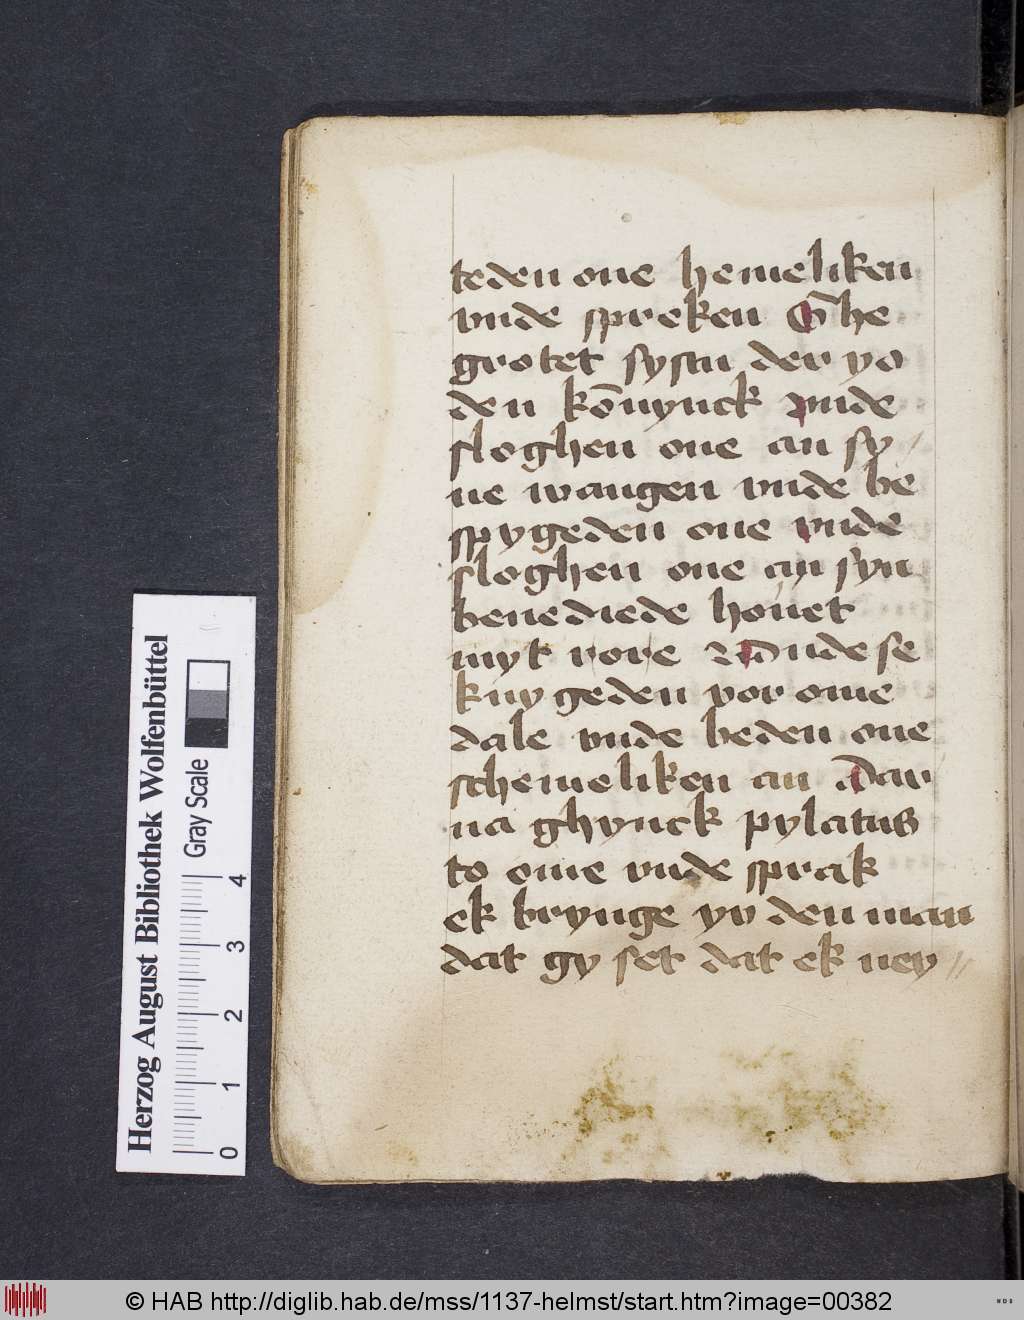 teden one hemeliken
vnde spreken Ghe
grotet systu der yo
den kōnynck vnde
sloghen one an sy
ne wangen vnde be
spygeden one vnde
sloghen one an syn
benediede houet
myt rore Vnde se
knygeden vor ome
dale vnde beden one
schemeliken an Dar
na ghynck pylatus
to ome vnde sprak
ek brynge yv den man
dat gy set dat ek ney //
Herzog August Bibliothek Wolfenbüttel
Gray Scale
0 1 2 3 4
© HAB http://diglib.hab.de/mss/1137-helmst/start.htm?image=00382